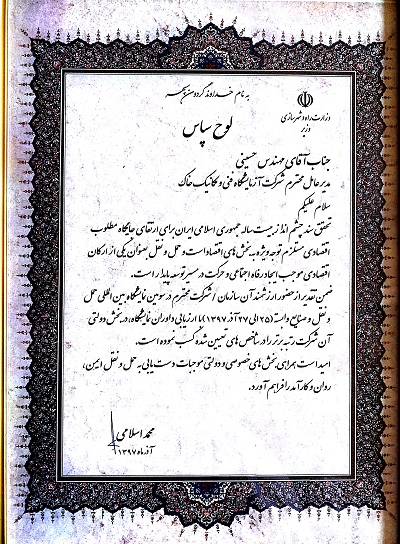 به نام خداوند گردون سپهر
وزارت راه و شهرسازی
وزیر
لوح سپاس
جناب آقای مهندس حسینی
مدیرعامل محترم شرکت آزمایشگاه فنی و مکانیک خاک
سلام علیکم
تحقق سند چشم انداز بیست ساله جمهوری اسلامی ایران برای ارتقای جایگاه مطلوب
اقتصادی مستلزم توجه ویژه به بخش های اقتصاد است و حمل و نقل بعنوان یکی از ارکان
اقتصادی موجب ایجاد رفاه اجتماعی و حرکت در مسیر توسعه پایدار است.
ضمن تقدیر از حضور ارزشمند آن سازمان / شرکت محترم در سومین نمایشگاه بین المللی حمل
و نقل و صنایع وابسته (۲۵ الی ۲۷ آذر ۱۳۹۷) با ارزیابی داوران نمایشگاه، در بخش دولتی
آن شرکت رتبه برتر را در شاخص های تعیین شده کسب نموده است.
امید است همراهی بخش های خصوصی و دولتی موجبات دست یابی به حمل و نقل ایمن،
روان و کارآمد را فراهم آورد.
محمد اسلامی
آذر ماه ۱۳۹۷